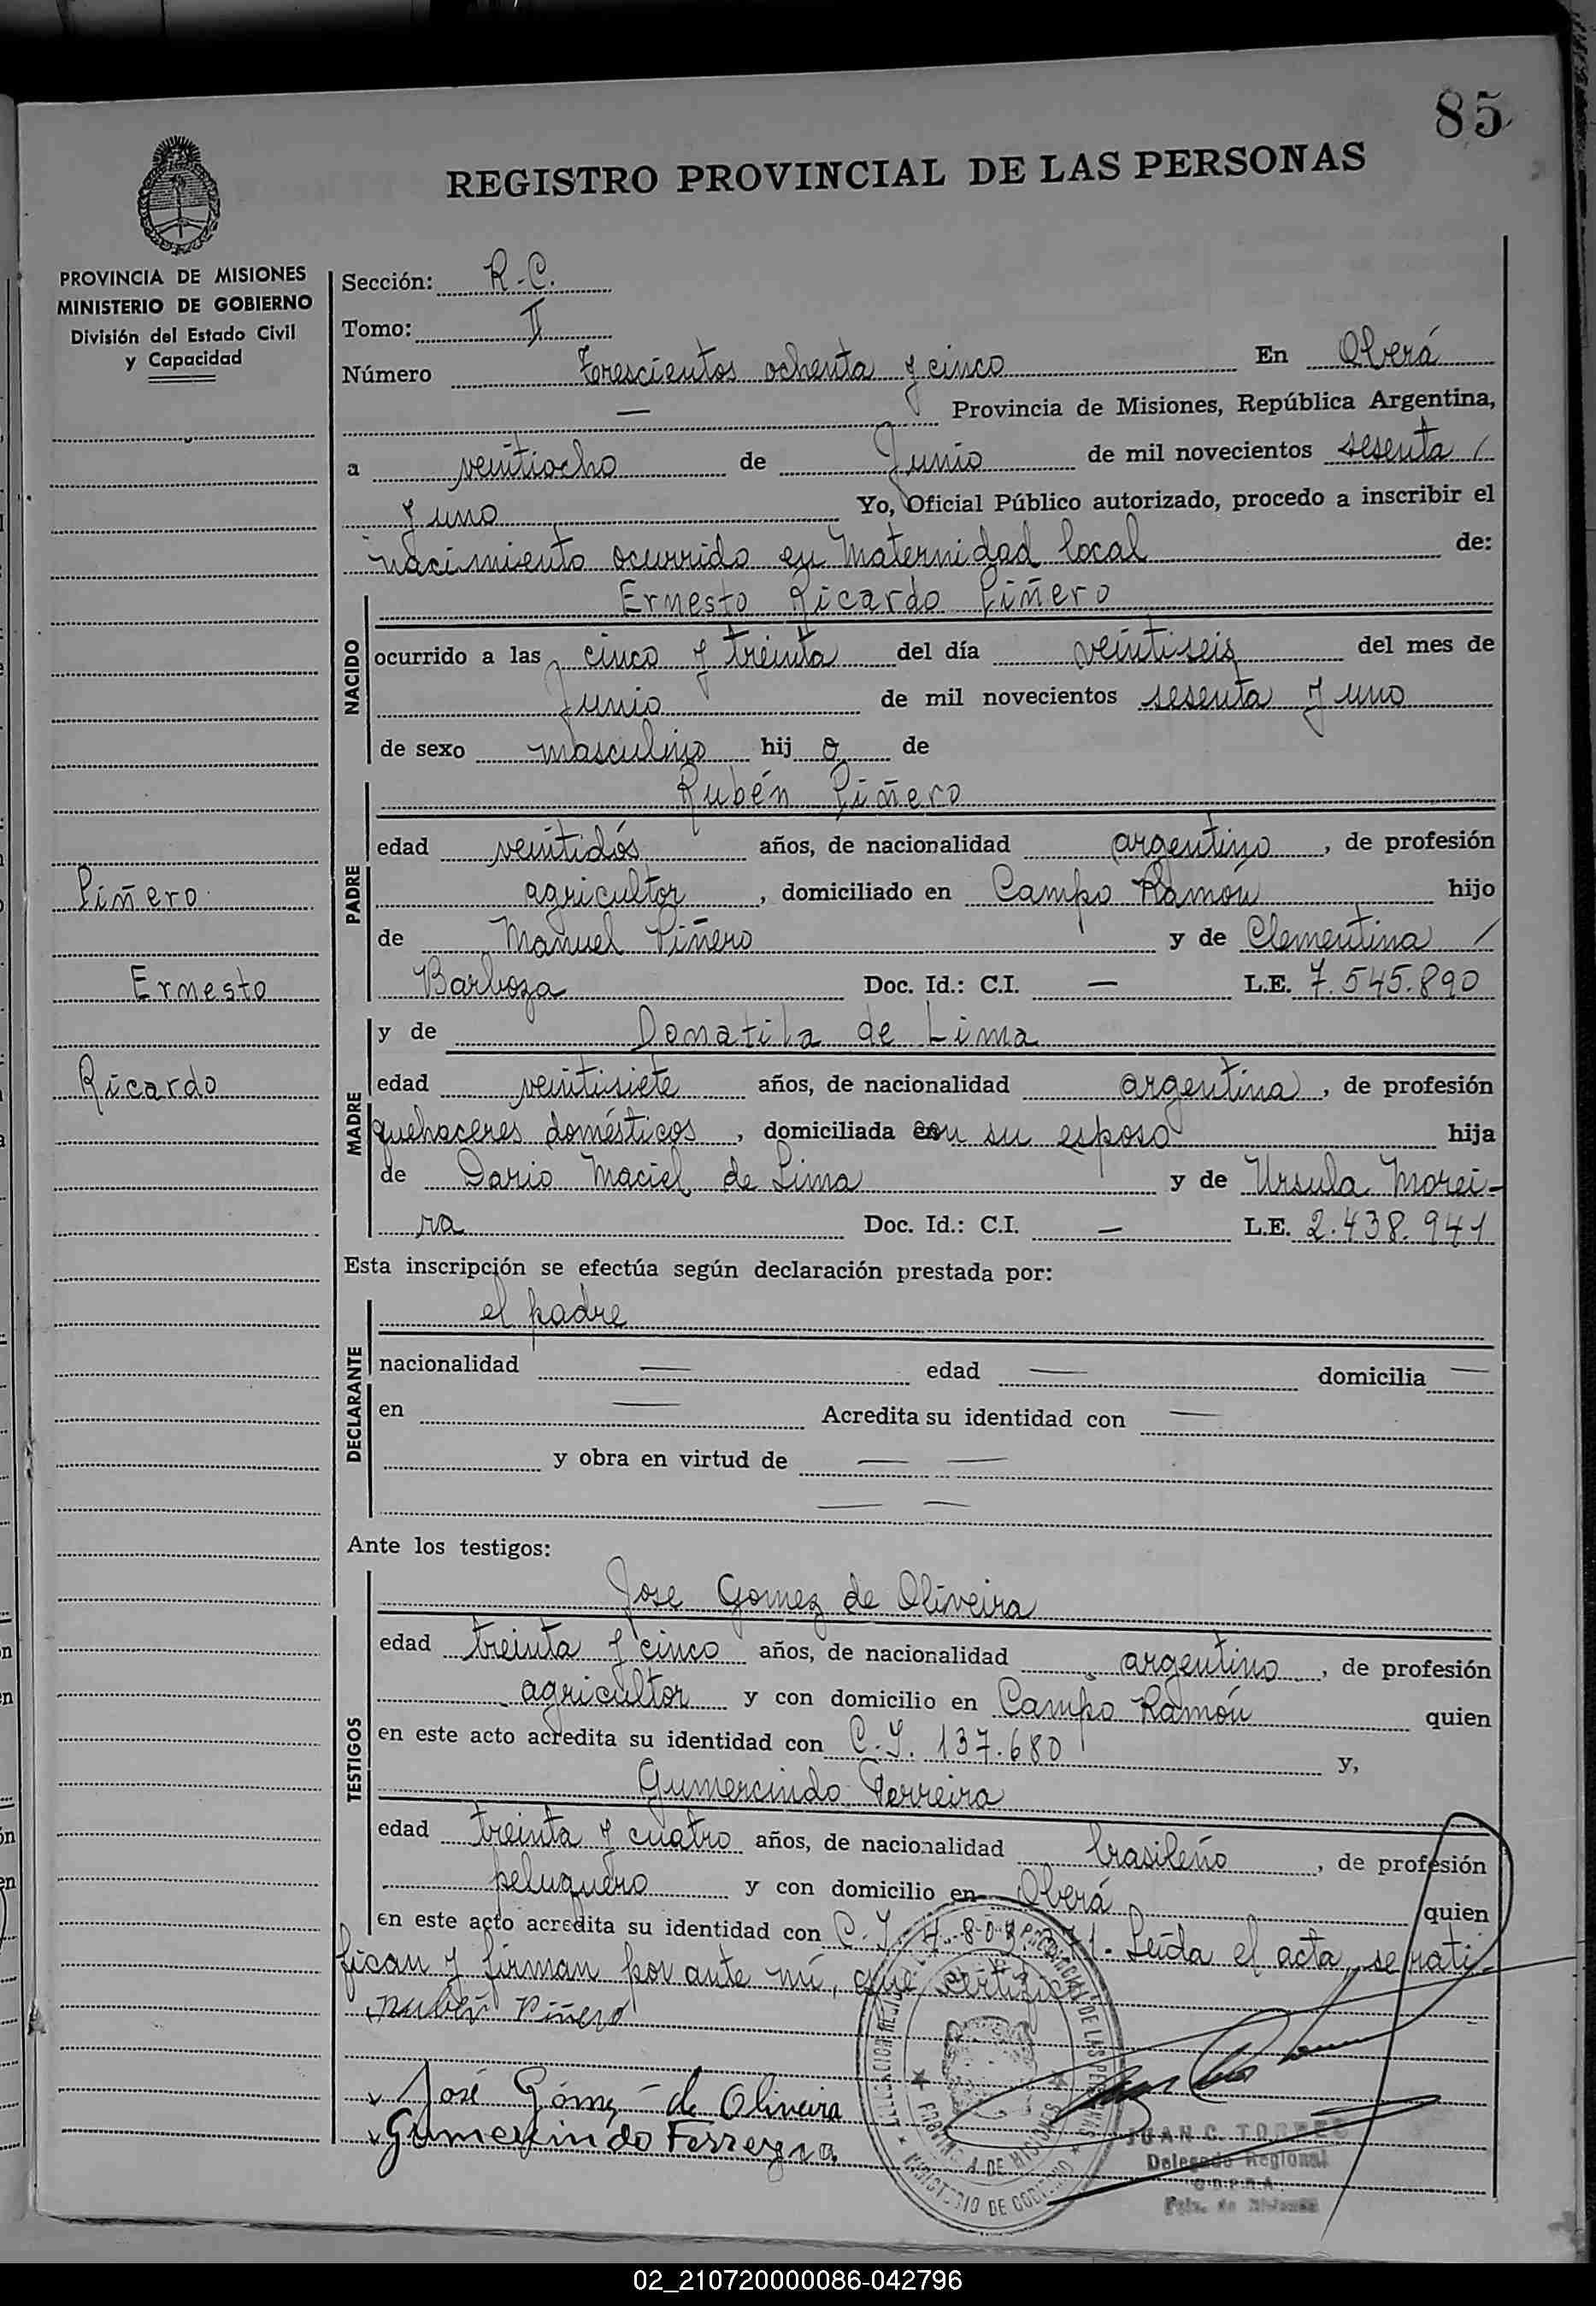 85
REGISTRO PROVINCIAL DE LAS PERSONAS
PROVINCIA DE MISIONES
MINISTERIO DE GOBIERNO
División del Estado Civil
y Capacidad
Sección: R.C.
Tomo: II
Número Trescientos ochenta y cinco En Oberá
— Provincia de Misiones, República Argentina,
a veintiocho de Junio de mil novecientos sesenta /
y uno Yo, Oficial Público autorizado, procedo a inscribir el
nacimiento ocurrido en Maternidad local de:
NACIDO
Ernesto Ricardo Piñero
ocurrido a las cinco y treinta del día veintiseis del mes de
Junio de mil novecientos sesenta y uno
de sexo masculino hij o de
PADRE
Rubén Piñero
edad veintidós años, de nacionalidad argentino, de profesión
agricultor, domiciliado en Campo Ramón hijo
de Manuel Piñero y de Clementina /
Barboza Doc. Id.: C.I. — L.E. 7.545.890
MADRE
y de Donatila de Lima
edad veintisiete años, de nacionalidad argentina, de profesión
quehaceres domésticos, domiciliada con su esposo hija
de Dario Maciel de Lima y de Ursula Morei-
ra Doc. Id.: C.I. — L.E. 2.438.941
Piñero
Ernesto
Ricardo
Esta inscripción se efectúa según declaración prestada por:
DECLARANTE
el padre
nacionalidad — edad — domicilia —
en — Acredita su identidad con —
y obra en virtud de — —
— —
Ante los testigos:
TESTIGOS
Jose Gomez de Oliveira
edad treinta y cinco años, de nacionalidad argentino, de profesión
agricultor y con domicilio en Campo Ramón quien
en este acto acredita su identidad con C.I. 137.680 y,
Gumercindo Ferreira
edad treinta y cuatro años, de nacionalidad brasileño, de profesión
peluquero y con domicilio en Oberá quien
en este acto acredita su identidad con C.I. Leída el acta, se rati-
fican y firman por ante mí, que certifico
Rubén Piñero
José Gómez de Oliveira
Gumercindo Ferreyra
PROVINCIA DE MISIONES
MINISTERIO DE GOBIERNO
JUAN C. TORRES
Delegado Regional
02_210720000086-042796